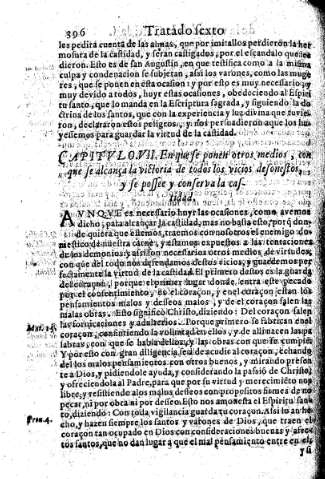 396 Tratado sexto
les pedirà cuenta de las almas, que por imitallos perdieron la her
mosura de la castidad, y seràn castigados, por el escandalo que
dieron. Esto es de san Augustin, en que testifica como a la misma
culpa y condenacion se subjetan, assi los varones, como las muge
res, que se ponen en esta ocasion: y por esto es muy necessario y
muy devido a todos, huyr estas ocasiones, obedeciendo al Espiri
tu santo, que lo manda en la Escriptura sagrada, y siguiendo la do
ctrina de los santos, que con la experiencia y luz divina que tuvie
ron, declararon estos peligros, y nos persuadieron a que los hu
yessemos para guardar la virtud de la castidad.
CAPITULO.VII. En que se ponen otros medios, con
que se alcança la victoria de todos los vicios deshonestos,
y se possee y conserva la cas-
tidad.
AVNQVE es necessario huyr las ocasiones, como avemos
dicho, para alcançar la castidad, mas no basta esto, porq don
de quiera que estemos, traemos con nosotros el enemigo do
mestico de nuestra carne, y estamos expuestos a las tentaciones
de los demonios: y assi son necessarios otros medios, de virtudes,
con que del todo nos defendamos destos vicios, y guardemos per
fectamente la virtud de la castidad. El primero destos es la guarda
del coraçon, porque el primer lugar donde entra este pecado
por el consentimiento, es el coraçon, y en el coraçon estan los
pensamientos malos y desseos malos, y del coraçon salen las
malas obras. Esto significò Christo, diziendo: Del coraçon salen
Mat.15. las fornicaciones y adulterios. Porque primero se fabrican en el
coraçon, consintiendo la voluntad en ellos, y de alli nacen las pa
labras, con que se habla dellos, y las obras con que se cumplen.
Y por esto con gran diligencia, se a de acudir al coraçon, echando
del los malos pensamientos con otros buenos, y mirando presen
te a Dios, y pidiendole ayuda, y considerando la passiõ de Christo,
y ofreciendola al Padre, para que por su virtud y merecimiẽto nos
libre, y resistiendo a los malos desseos con propositos firmes de no
pecar, ni por obra ni por desseo. Esto nos amonesta el Espiritu san
Prou.4. to, diziendo: Con toda vigilancia guarda tu coraçon. Assi lo an he
cho, y hazen siempre los santos y varones de Dios, que traen el
coraçon tan ocupado en Dios con consideraciones buenas y afec
tos santos, que no dan lugar a que el mal pensamiento entre en el,